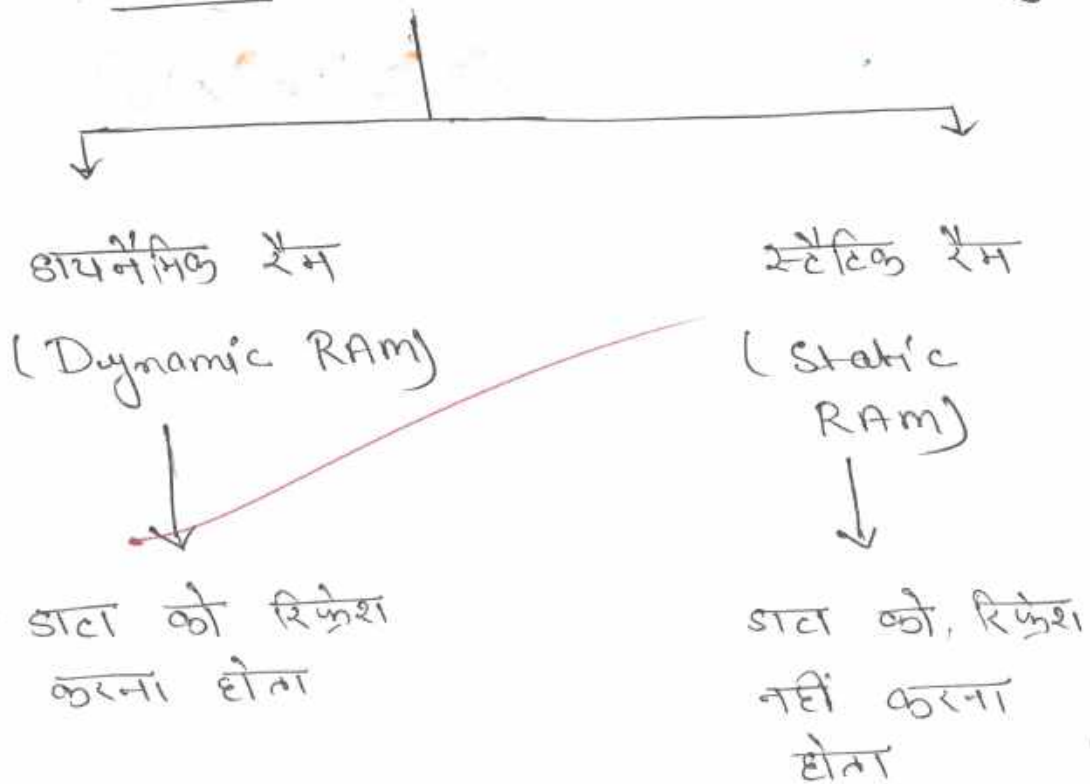 डायनैमिक रैम
(Dynamic RAM)
डाटा को रिफ्रेश
करना होता
स्टैटिक रैम
(Static
RAM)
डाटा को, रिफ्रेश
नहीं करना
होता